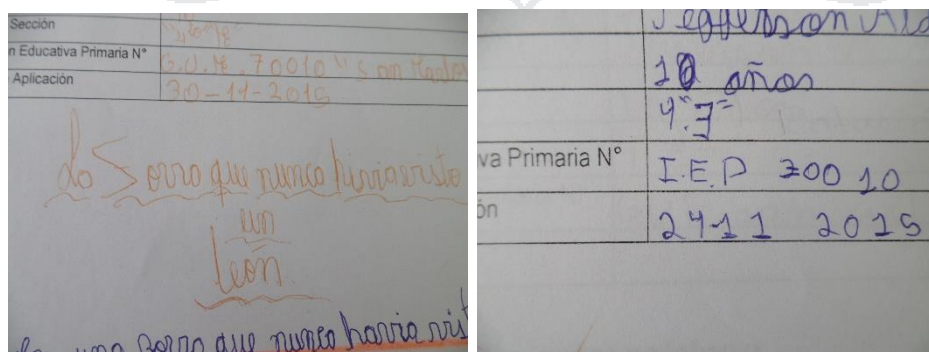 Sección
n Educativa Primaria N° 70010 "San
Aplicación 30-11-2015
Lo Sorro que nunca hiviavisto
un
león.
una sorro que nunca havia vis
Jegferson
10 años
4° "J"
va Primaria N° I.E.P 70010
ón 24-11 2015